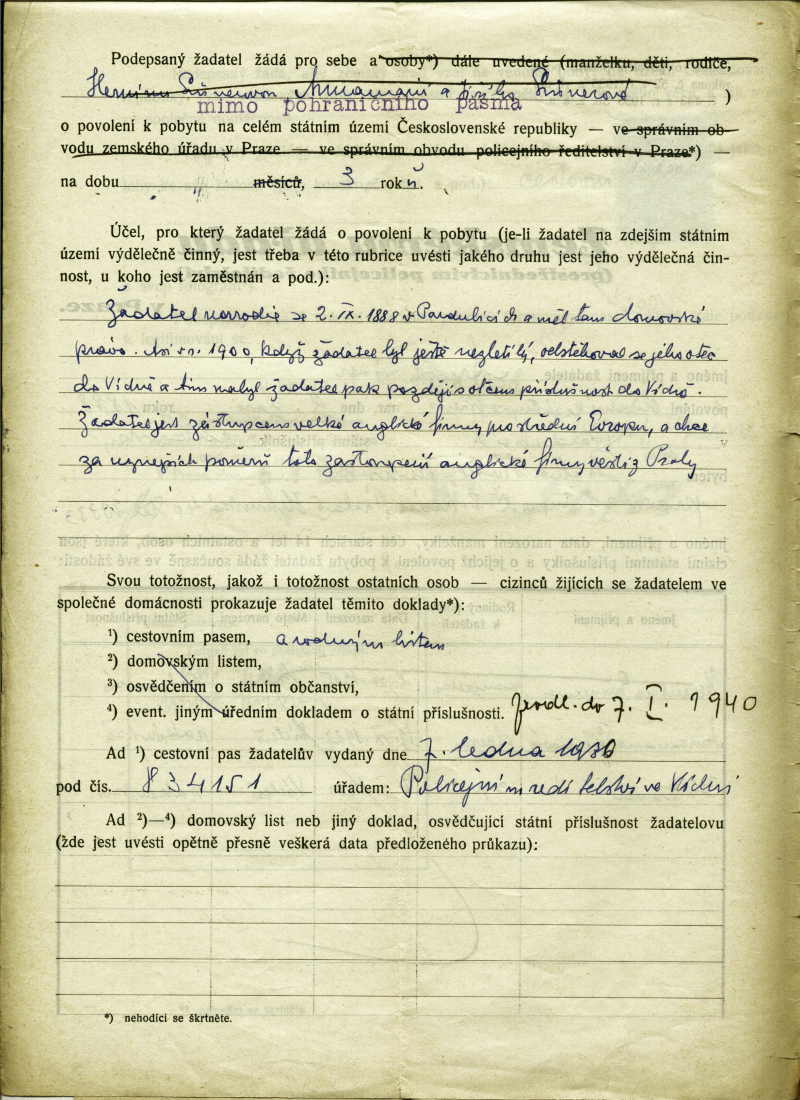 Podepsaný žadatel žádá pro sebe a osoby*) dále uvedené (manželku, děti, rodiče,
a )
mimo pohraničního pásma
o povolení k pobytu na celém státním území Československé republiky — ve správním ob-
vodu zemského úřadu v Praze — ve správním obvodu policejního ředitelství v Praze*) —
na dobu " měsíců, 3 roků.
Účel, pro který žadatel žádá o povolení k pobytu (je-li žadatel na zdejším státním
území výdělečně činný, jest třeba v této rubrice uvésti jakého druhu jest jeho výdělečná čin-
nost, u koho jest zaměstnán a pod.):
Žadatel narodil se 2. IX. 1888 v Pardubicích a měl tam domovské
právo. Asi v r. 1900, když žadatel byl ještě nezletilý, odstěhoval se jeho otec
do Vídně a tím nabyl žadatel pak později s otcem příslušnost do Vídně.
Žadatel jest zástupcem velké anglické firmy pro střední Evropu, a chce
za nynějších poměrů toto zastoupení anglické firmy vésti z Prahy
Svou totožnost, jakož i totožnost ostatních osob — cizinců žijících se žadatelem ve
společné domácnosti prokazuje žadatel těmito doklady*):
¹) cestovním pasem, a rodným listem
²) domovským listem,
³) osvědčením o státním občanství,
⁴) event. jiným úředním dokladem o státní příslušnosti. prodl. do 7. I. 1940
Ad ¹) cestovní pas žadatelův vydaný dne 7. ledna
pod čís. 834151 úřadem: Policejním ředitelství ve Vídni
Ad ²)—⁴) domovský list neb jiný doklad, osvědčující státní příslušnost žadatelovu
(žde jest uvésti opětně přesně veškerá data předloženého průkazu):
*) nehodící se škrtněte.